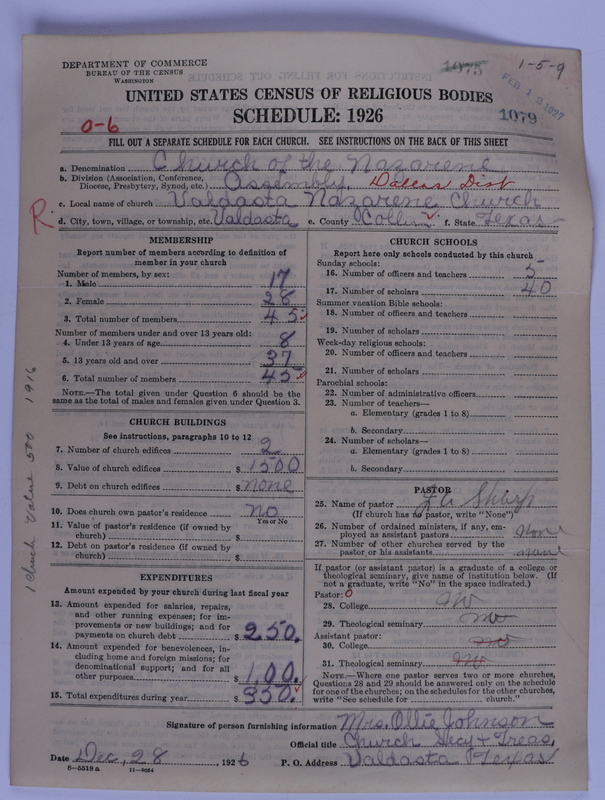 DEPARTMENT OF COMMERCE
BUREAU OF THE CENSUS
WASHINGTON
1075
1-5-9
FEB 12 1927
UNITED STATES CENSUS OF RELIGIOUS BODIES
SCHEDULE: 1926
1079
0-6
FILL OUT A SEPARATE SCHEDULE FOR EACH CHURCH. SEE INSTRUCTIONS ON THE BACK OF THIS SHEET
a. Denomination Church of the Nazarene
b. Division (Association, Conference, Diocese, Presbytery, Synod, etc.) Assembly, Dallas Dist
c. Local name of church Valdasta Nazarene Church
R. d. City, town, village, or township, etc. Valdasta e. County Collin f. State Texas
MEMBERSHIP
Report number of members according to definition of
member in your church
Number of members, by sex:
1. Male 17
2. Female 28
3. Total number of members 45
Number of members under and over 13 years old:
4. Under 13 years of age 8
5. 13 years old and over 37
6. Total number of members 45
NOTE.—The total given under Question 6 should be
same as the total of males and females given under Question 3.
CHURCH BUILDINGS
See instructions, paragraphs 10 to 12
7. Number of church edifices 2
8. Value of church edifices $ 1500
9. Debt on church edifices $ none
10. Does church own pastor's residence? no
Yes or No
11. Value of pastor's residence (if owned by
church) $
12. Debt on pastor's residence (if owned by
church) $
EXPENDITURES
Amount expended by your church during last fiscal year
13. Amount expended for salaries, repairs,
and other running expenses; for im-
provements or new buildings; and for
payments on church debt $ 250.
14. Amount expended for benevolences, in-
cluding home and foreign missions; for
denominational support; and for all
other purposes $ 100.
15. Total expenditures during year $ 350.
1 church value 500 1916
CHURCH SCHOOLS
Report here only schools conducted by this church
Sunday schools:
16. Number of officers and teachers 5
17. Number of scholars 40
Summer vacation Bible schools:
18. Number of officers and teachers
19. Number of scholars
Week-day religious schools:
20. Number of officers and teachers
21. Number of scholars
Parochial schools:
22. Number of administrative officers
23. Number of teachers—
a. Elementary (grades 1 to 8)
b. Secondary
24. Number of scholars—
a. Elementary (grades 1 to 8)
b. Secondary
PASTOR
25. Name of pastor Sharp
(If church has no pastor, write "None")
26. Number of ordained ministers, if any, em-
ployed as assistant pastors none
27. Number of other churches served by the
pastor or his assistants none
If pastor (or assistant pastor) is a graduate of a college or
theological seminary, give name of institution below. (If
not a graduate, write "No" in the space indicated.)
Pastor: 0
28. College no
29. Theological seminary no
Assistant pastor:
30. College no
31. Theological seminary no
NOTE.—Where one pastor serves two or more churches,
Questions 28 and 29 should be answered only on the schedule
for one of the churches; on the schedules for the other churches,
write "See schedule for church."
Signature of person furnishing information Mrs. Ollie Johnson
Official title Church Secy + Treas,
Date Dec, 28, 1926 P. O. Address Valdasta Texas
8—5519 a 11—9264